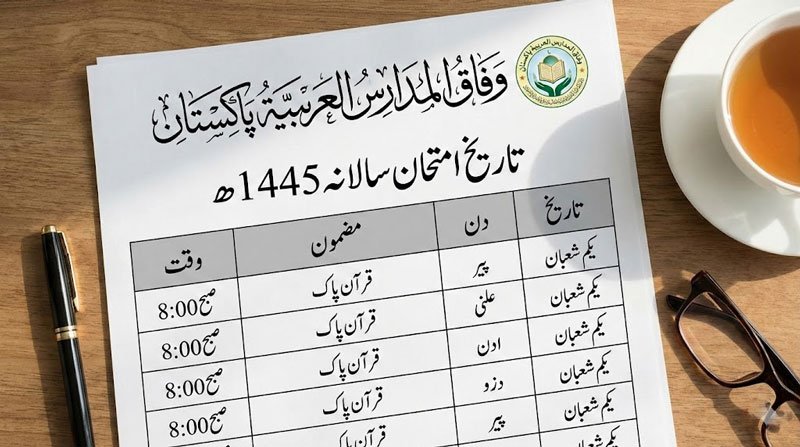 وَفَاقُ المَدَارِسِ العَرَبِيَّةِ پَاکِسْتَان
تاریخ امتحان سالانہ 1445ھ
تاریخ دن مضمون وقت
یکم شعبان پیر قرآن پاک صبح 8:00
یکم شعبان علنی قرآن پاک صبح 8:00
یکم شعبان ادن قرآن پاک صبح 8:00
یکم شعبان دزو قرآن پاک صبح 8:00
یکم شعبان پیر قرآن پاک صبح 8:00